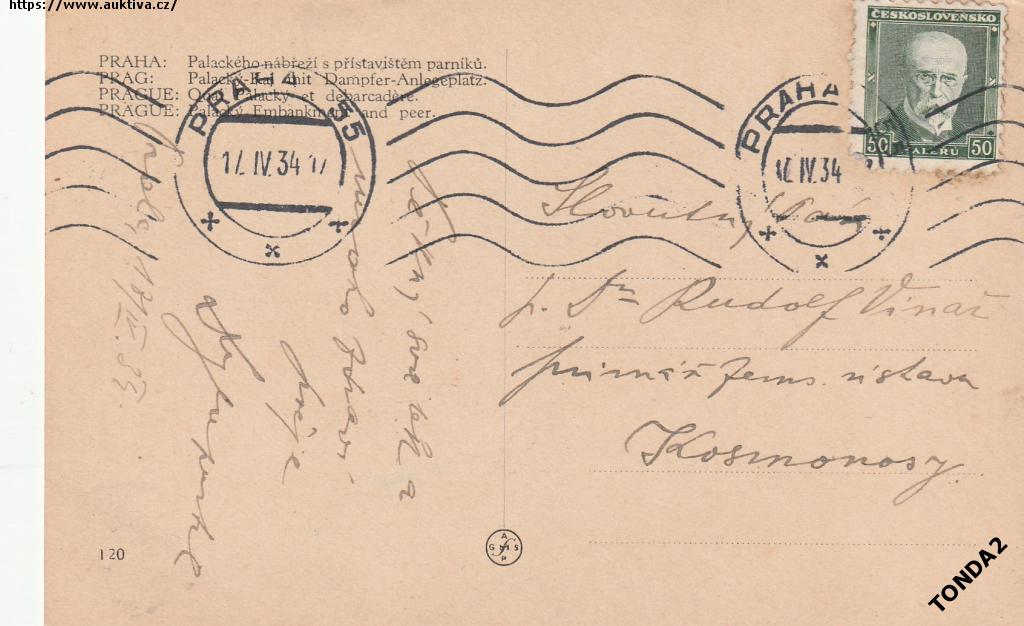 https://www.auktiva.cz/
PRAHA: Palackého nábřeží s přístavištěm parníků.
PRAG: Palacký-Kai mit Dampfer-Anlegeplatz.
PRAGUE: Quai Palacký et debarcadère.
PRAGUE: Palacký Embankment and peer.
PRAHA 55
17. IV. 34 17
PRAHA
17. IV. 34
ČESKOSLOVENSKO
50 HALÉŘŮ 50
svátek a
mnoho zdraví
přeje
Slovutný Pán
p. Dr Rudolf Vinař
primář zems. ústavu
Kosmonosy
120
GRAFIS
TONDA2